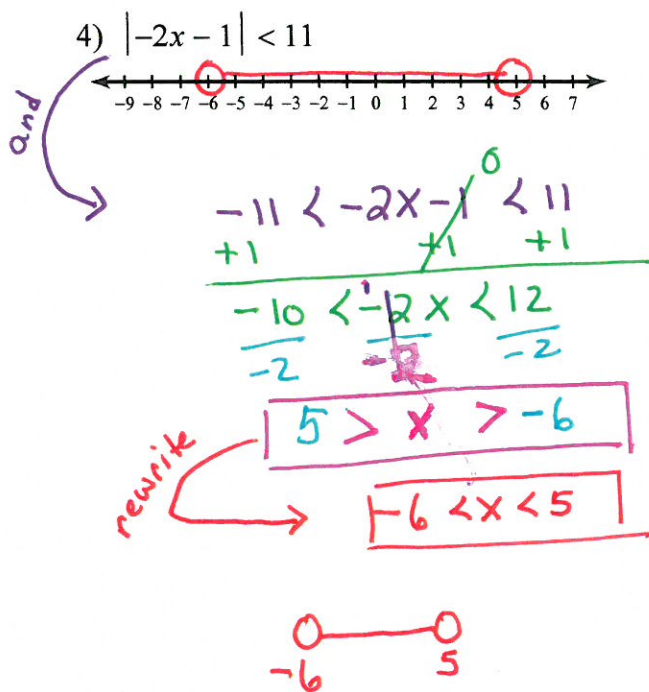 4) |−2x − 1| < 11
−9 −8 −7 −6 −5 −4 −3 −2 −1 0 1 2 3 4 5 6 7
and
0
-11 < -2x -1 < 11
+1 +1 +1
-10 < -2x < 12
-2 -2
5 > x > -6
rewrite
-6 < x < 5
-6 5